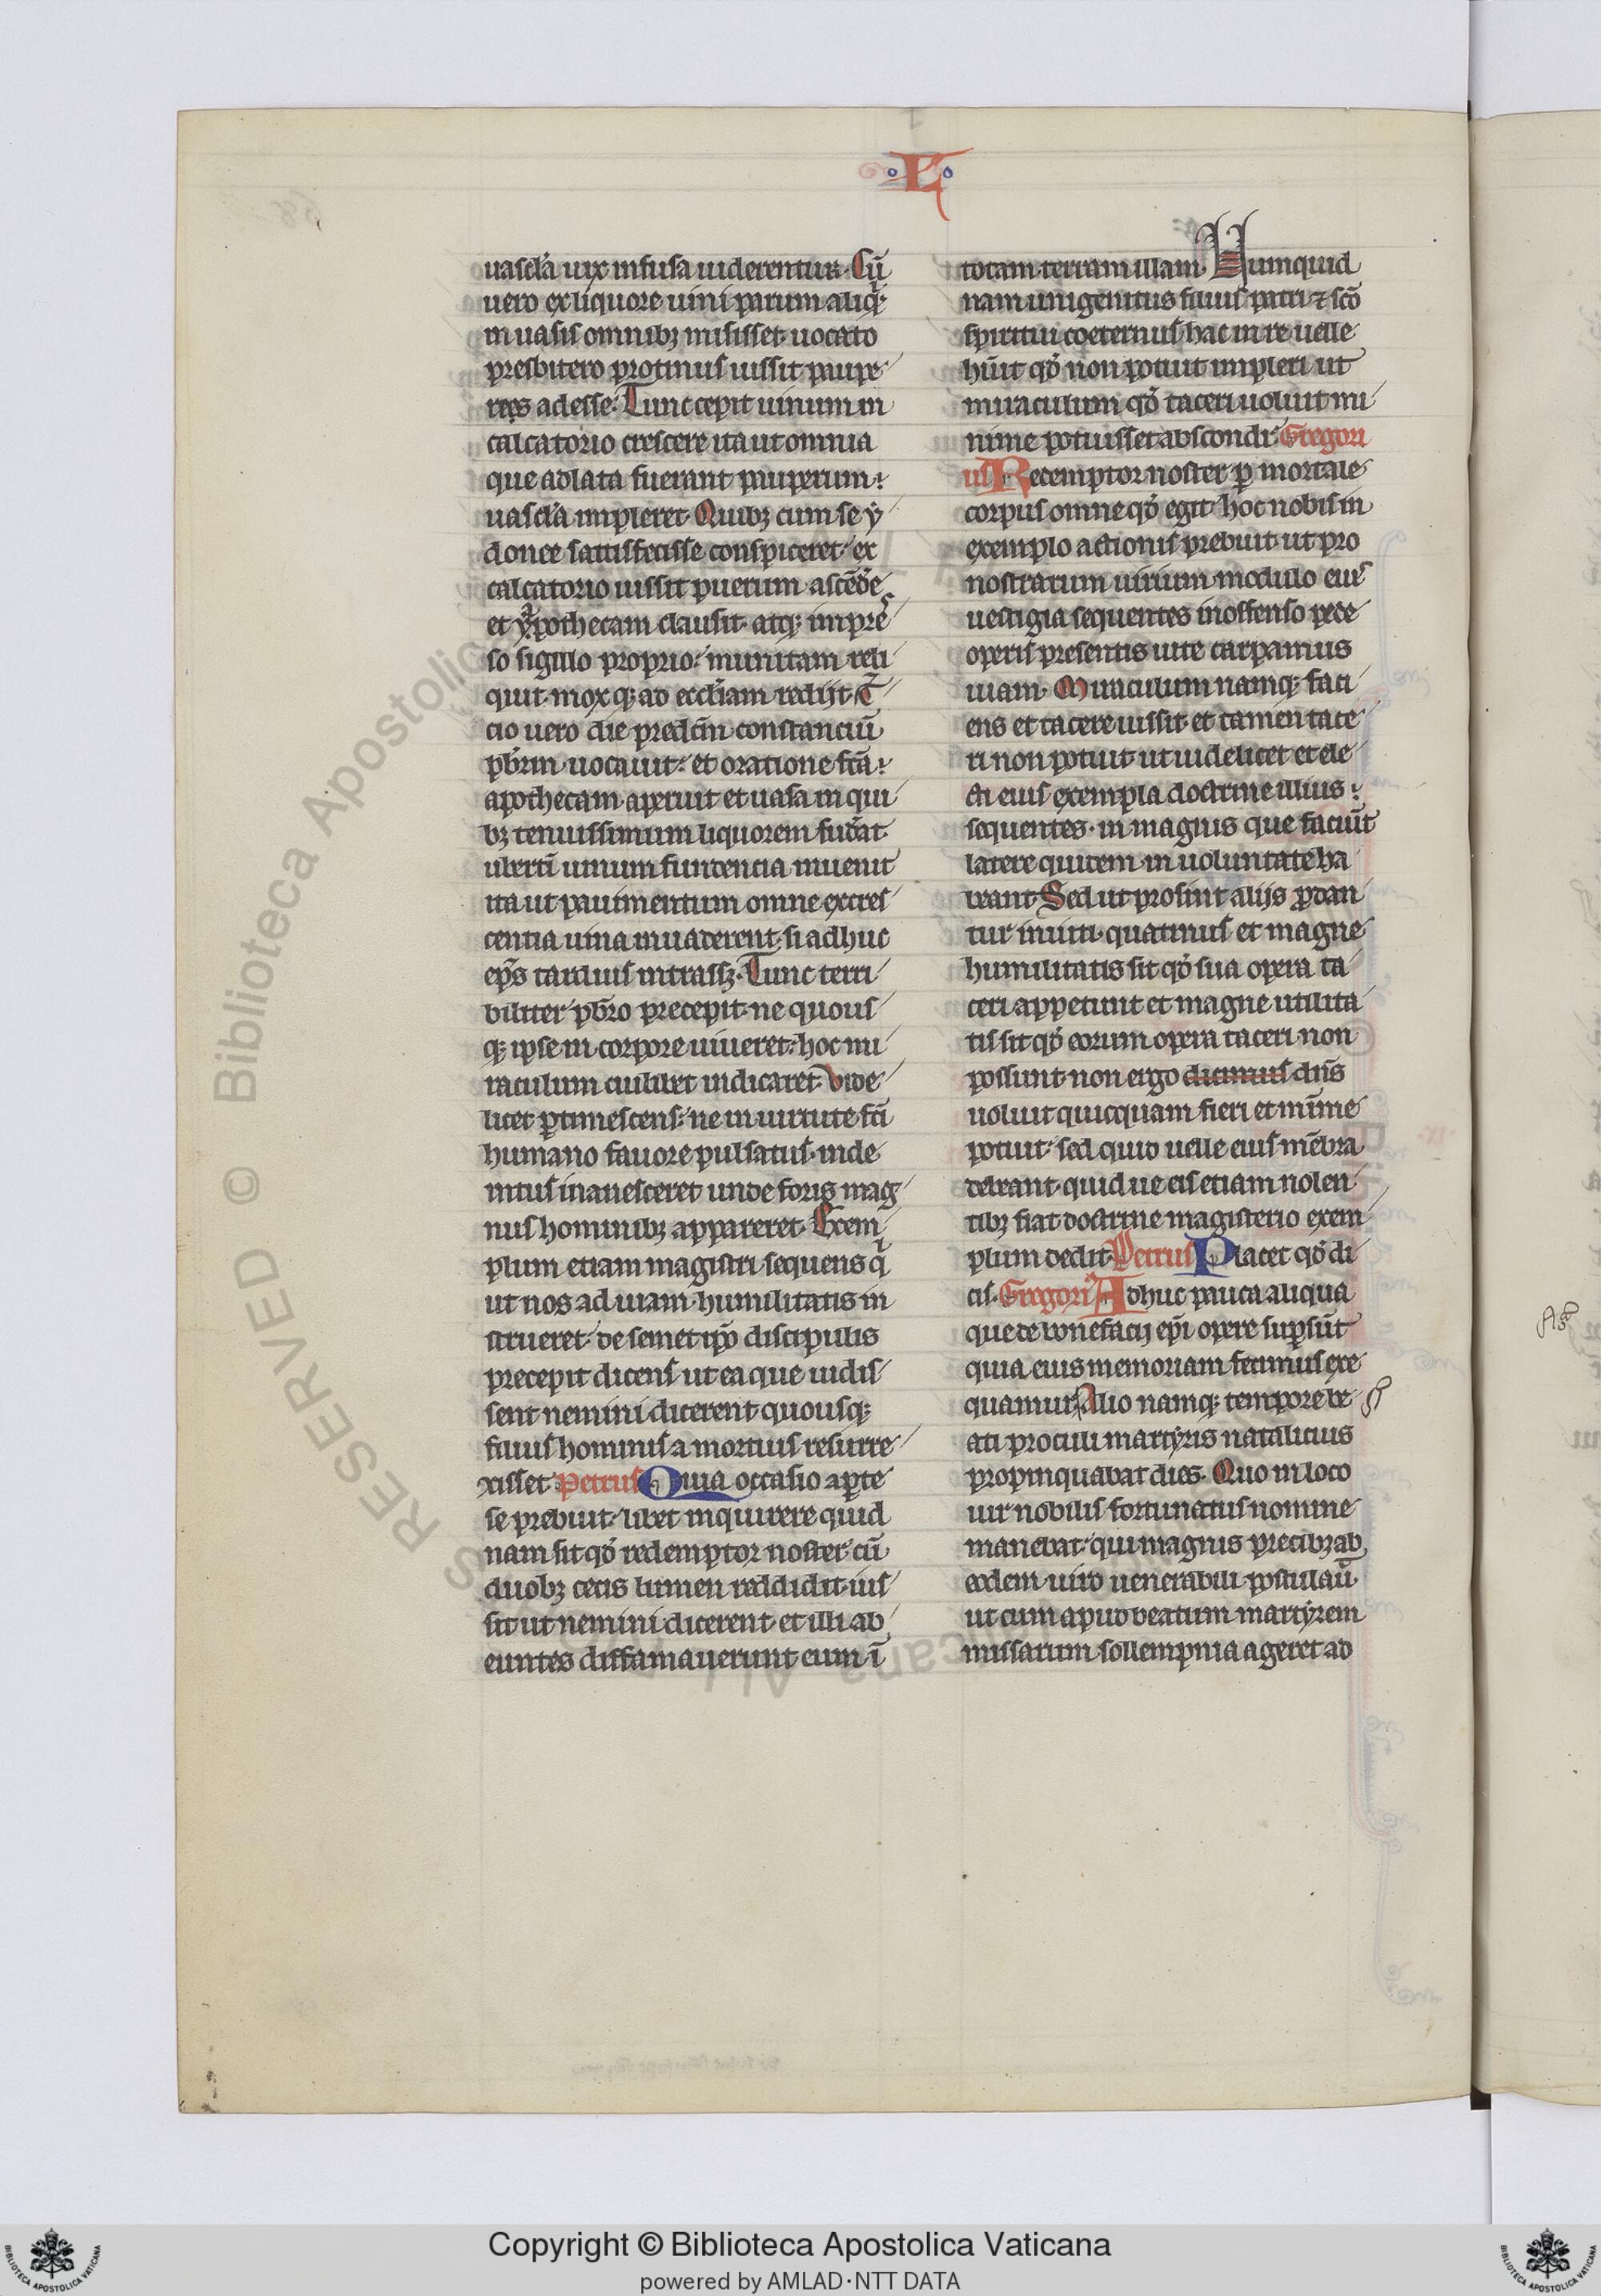 ·L·
uascła uix infusa uiderentur. Cū
uero ex liquore uini parum aliqͥ
in uasis omnibꝫ misisset uocato
presbitero protinus iussit paupe
res adesse. Tunc cepit uinum in
calcatorio crescere ita ut omnia
que adlata fuerant pauperum
uascła impleret. Quibꝫ cum se ẏ
donee satisfecisse conspiceret ex
calcatorio iussit puerum ascēde
et ẏpothecam clausit atqꝫ impres
so sigillo proprio munitam reli
quit moxqꝫ ad eccłiam redijt. T
cio uero die predcm̄ constanciū
pbrm̄ uocauit et oratione fcā
apothecam aperuit et uasa in qui
bꝫ tenuissimum liquorem fuđat
ubertī uinum fundencia inuenit
ita ut pauimentum omne excres
centia uina inuaderent si adhuc
ep̄s tardius intrassꝫ. Tunc terri
biliter pbr̄o precepit ne quous
qꝫ ipse in corpore uiueret hoc mi
raculum cuilibet indicaret. Vide
licet ꝑtimescens ne in uirtute fcī
humano fauore pulsatus inde
intus inanesceret unde foris mag
nus hominibꝫ appareret. Exem
plum etiam magistri sequens qͥ
ut nos ad uiam humilitatis in
strueret de semet ip̄o discipulis
precepit dicens ut ea que uidis
sent nemini dicerent quousqꝫ
filius hominis a mortuis resurre
xisset Petrus Quia occasio apte
se prebuit libet inquirere quid
nam sit qđ redemptor noster cū
duobꝫ cecis lumen reddidit ius
sit ut nemini dicerent et illi ab
euntes diffamauerunt eum ī
totam terram illam. Numquid
nam unigenitus filius patri ⁊ scō
spiritui coeternus hac in re uelle
hūit qđ non potuit impleri ut
miraculum qđ taceri uoluit mi
nime potuisset abscondi. Gregori
us Redemptor noster ꝑ mortale
corpus omne qđ egit hoc nobis in
exemplo actionis prebuit ut pro
nostrarum uirium modulo eius
uestigia sequentes inoffenso pede
operis presentis uite carpamus
uiam. Miraculum namqꝫ faci
ens et tacere iussit et tamen tace
ri non potuit ut uidelicet et ele
cti eius exempla doctrine illius
sequentes in magnis que faciūt
latere quidem in uoluntate ha
beant Sed ut prosint alijs ꝓdan
tur inuiti quatinus et magne
humilitatis sit qđ sua opera ta
ceri appetunt et magne utilita
tis sit qđ eorum opera taceri non
possunt non ergo dicimus dn̄s
uoluit quicquam fieri et mīme
potuit sed quid uelle eius mēbra
debeant quid ue eis etiam nolen
tibꝫ fiat doctrine magisterio exem
plum dedit. Petrus Placet qđ di
cis. Gregori Adhuc pauca aliqua
que de bonefacij ep̄i opere supsūt
quia eius memoriam fecimus exe
quamur Alio namqꝫ tempore be
ati proculi martyris natalicius
propinquabat dies. Quo in loco
uir nobilis fortunatus nomine
manebat qui magnis precibꝫ ab
eodem uiro uenerabili postulaū
ut cum apud beatum martyrem
missarum sollempnia ageret ad
RESERVED © Biblioteca Apostolica
Copyright © Biblioteca Apostolica Vaticana
powered by AMLAD·NTT DATA